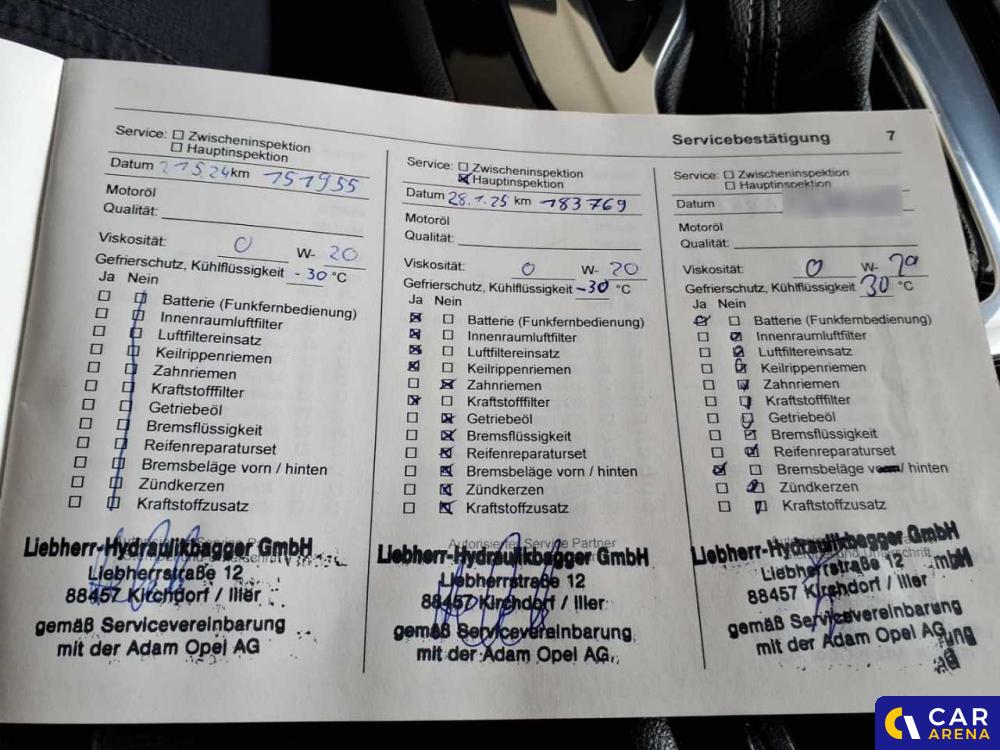 Servicebestätigung 7
Service: Zwischeninspektion
Hauptinspektion
Datum 21.5.24 km 151955
Motoröl
Qualität:
Viskosität: 0 W- 20
Gefrierschutz, Kühlflüssigkeit -30 °C
Ja Nein
Batterie (Funkfernbedienung)
Innenraumluftfilter
Luftfiltereinsatz
Keilrippenriemen
Zahnriemen
Kraftstofffilter
Getriebeöl
Bremsflüssigkeit
Reifenreparaturset
Bremsbeläge vorn / hinten
Zündkerzen
Kraftstoffzusatz
Liebherr-Hydraulikbagger GmbH
Liebherrstraße 12
88457 Kirchdorf / Iller
gemäß Servicevereinbarung
mit der Adam Opel AG
Service: Zwischeninspektion
Hauptinspektion
Datum 28.1.25 km 183769
Motoröl
Qualität:
Viskosität: 0 W- 20
Gefrierschutz, Kühlflüssigkeit -30 °C
Ja Nein
Batterie (Funkfernbedienung)
Innenraumluftfilter
Luftfiltereinsatz
Keilrippenriemen
Zahnriemen
Kraftstofffilter
Getriebeöl
Bremsflüssigkeit
Reifenreparaturset
Bremsbeläge vorn / hinten
Zündkerzen
Kraftstoffzusatz
Autorisierter Service Partner
Liebherr-Hydraulikbagger GmbH
Liebherrstraße 12
88457 Kirchdorf / Iller
gemäß Servicevereinbarung
mit der Adam Opel AG
Service: Zwischeninspektion
Hauptinspektion
Datum
Motoröl
Qualität:
Viskosität: 0 W-
Gefrierschutz, Kühlflüssigkeit 30 °C
Ja Nein
Batterie (Funkfernbedienung)
Innenraumluftfilter
Luftfiltereinsatz
Keilrippenriemen
Zahnriemen
Kraftstofffilter
Getriebeöl
Bremsflüssigkeit
Reifenreparaturset
Bremsbeläge vorn / hinten
Zündkerzen
Kraftstoffzusatz
Liebherr-Hydraulikbagger GmbH
Liebherrstraße 12
88457 Kirchdorf / Iller
gemäß Servicevereinbarung
mit der Adam Opel AG
CAR
ARENA